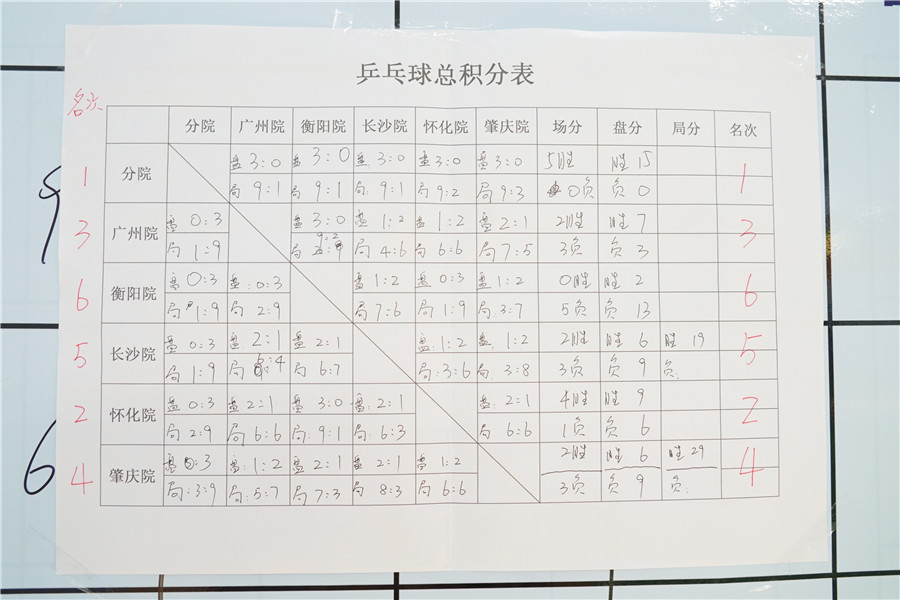 乒乓球总积分表
名次
分院 广州院 衡阳院 长沙院 怀化院 肇庆院 场分 盘分 局分 名次
1 分院 盘 3:0 盘 3:0 盘 3:0 盘 3:0 盘 3:0 5胜 胜 15 1
局 9:1 局 9:1 局 9:1 局 9:2 局 9:3 0负 负 0
3 广州院 盘 0:3 盘 3:0 盘 1:2 盘 1:2 盘 2:1 2胜 胜 7 3
局 1:9 局 9:2 局 4:6 局 6:6 局 7:5 3负 负 3
6 衡阳院 盘 0:3 盘:0:3 盘 1:2 盘 0:3 盘 1:2 0胜 胜 2 6
局 1:9 局 2:9 局 7:6 局 1:9 局 3:7 5负 负 13
5 长沙院 盘 0:3 盘 2:1 盘 2:1 盘:1:2 盘:1:2 2胜 胜 6 胜 19 5
局 1:9 局 6:4 局 6:7 局:3:6 局:3:8 3负 负 9 负:
2 怀化院 盘 0:3 盘 2:1 盘 3:0 盘:2:1 盘:2:1 4胜 胜 9 2
局 2:9 局 6:6 局:9:1 局:6:3 局 6:6 1负 负 6
4 肇庆院 盘 0:3 盘:1:2 盘 2:1 盘 2:1 盘 1:2 2胜 胜 6 胜 29 4
局:3:9 局:5:7 局 7:3 局 8:3 局 6:6 3负 负 9 负: